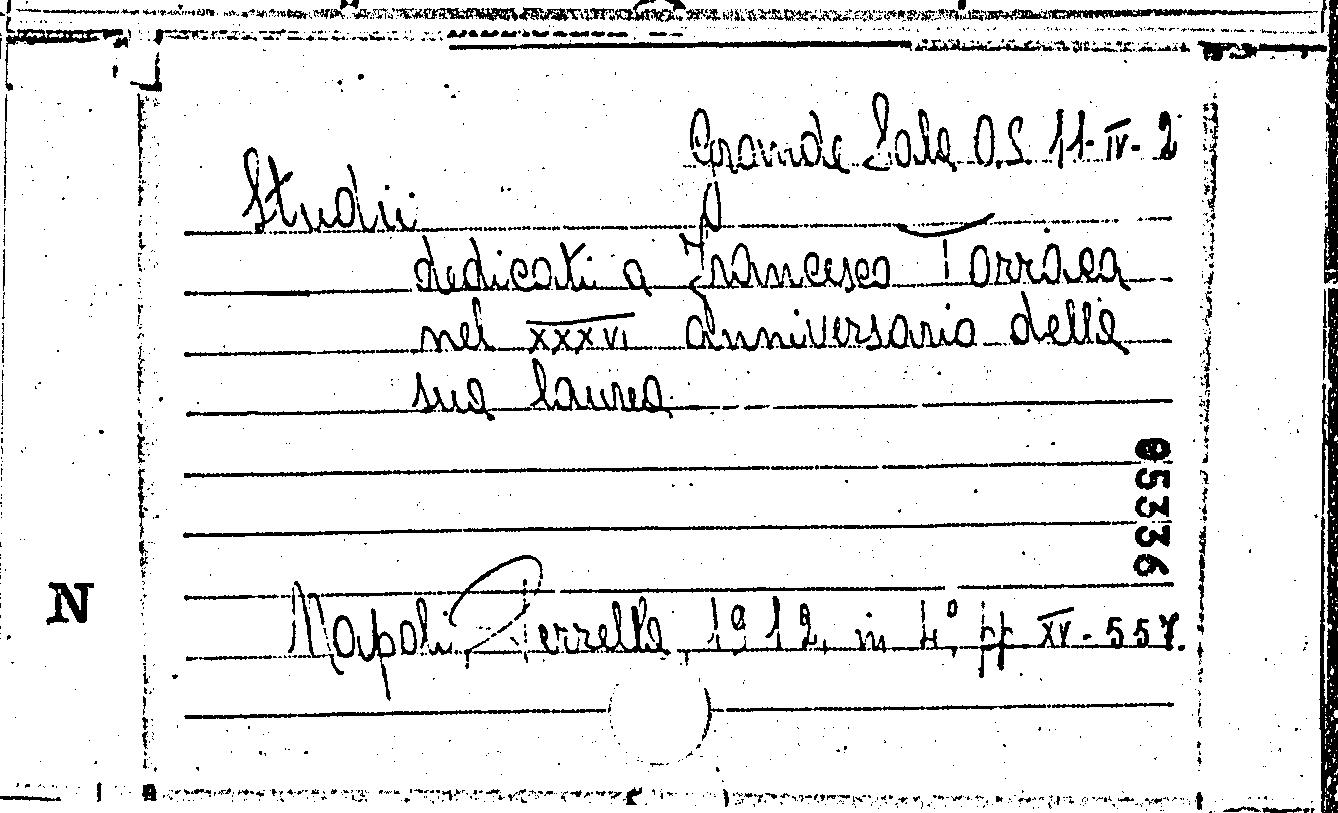 Grande Sala O.S. 11-IV-2
Studii
dedicati a Francesco Torraca
nel XXXVI anniversario della
sua laurea
05336
N
Napoli, Perrella, 1912, in 4°, pp XV-557.